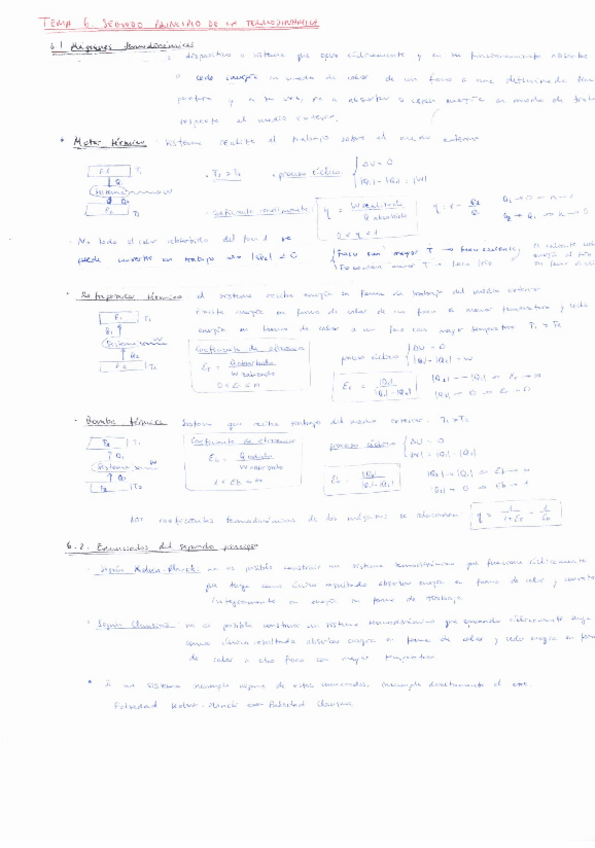 TEMA 6. SEGUNDO PRINCIPIO DE LA TERMODINÁMICA
6.1 Máquinas termodinámicas
: dispositivo o sistema que opera cíclicamente y en su funcionamiento absorbe
o cede energía en modo de calor de un foco a una determinada
peratura y a su vez, va a absorber o ceder energía en modo de
respecto el medio externo.
* Motor térmico: Sistema realiza el trabajo sobre el medio externo
F1 | T1
Q1
Sistema W
Q2
F2 | T2
· T1 > T2 · proceso cíclico { ΔU = 0
|Q1| - |Q2| = |W|
· Coeficiente rendimiento: η = W realizado / Q absorbido
0 < η < 1
η = 1 - Q2/Q1
· No todo el calor absorbido del foco 1 se
puede convertir en trabajo
{ Foco con mayor T → Foco caliente
Foco con menor T → foco frío
· Refrigerador térmico: el sistema recibe energía en forma de trabajo del medio exterior
energía en forma de calor de un foco a menor temperatura y cede
energía en forma de calor a un foco con mayor temperatura T1 > T2
F1 | T1
Q1
Sistema W
Q2
F2 | T2
Coeficiente de eficiencia
Er = Q absorbido / W realizado
0 < Er < ∞
proceso cíclico { ΔU = 0
|Q1| - |Q2| = W
Er = |Q2| / |Q1| - |Q2|
|Q2| → |Q1| ⇒ Er → ∞
|Q2| → 0 ⇒ Er → 0
· Bomba térmica: Sistema que recibe trabajo del medio exterior. T1 > T2
F1 | T1
Q1
Sistema W
Q2
F2 | T2
Coeficiente de eficiencia
Eb = Q cedido / W absorbido
1 < Eb < ∞
proceso cíclico { ΔU = 0
|W| = |Q1| - |Q2|
Eb = |Q1| / |Q1| - |Q2|
|Q2| → |Q1| ⇒ Eb → ∞
|Q2| → 0 ⇒ Eb → 1
Los coeficientes termodinámicos de las máquinas se relacionan: η = 1/(1+Er) = 1/Eb
6.2. Enunciados del segundo principio
· Según Kelvin-Planck: no es posible construir un sistema termodinámico que funcione cíclicamente
que tenga como único resultado absorber energía en forma de calor y
íntegramente en energía en forma de trabajo
· Según Clausius: no es posible construir un sistema termodinámico que operando cíclicamente tenga
como único resultado absorber energía en forma de calor y ceda energía en
de calor a otro foco con mayor temperatura
* Si un sistema incumple alguno de estos enunciados, incumple directamente el otro.
Falsedad Kelvin-Planck Falsedad Clausius